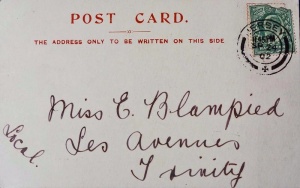 POST CARD.
THE ADDRESS ONLY TO BE WRITTEN ON THIS SIDE
JERSEY
02
Miss E. Blampied
Local.
Les Avenues
Trinity